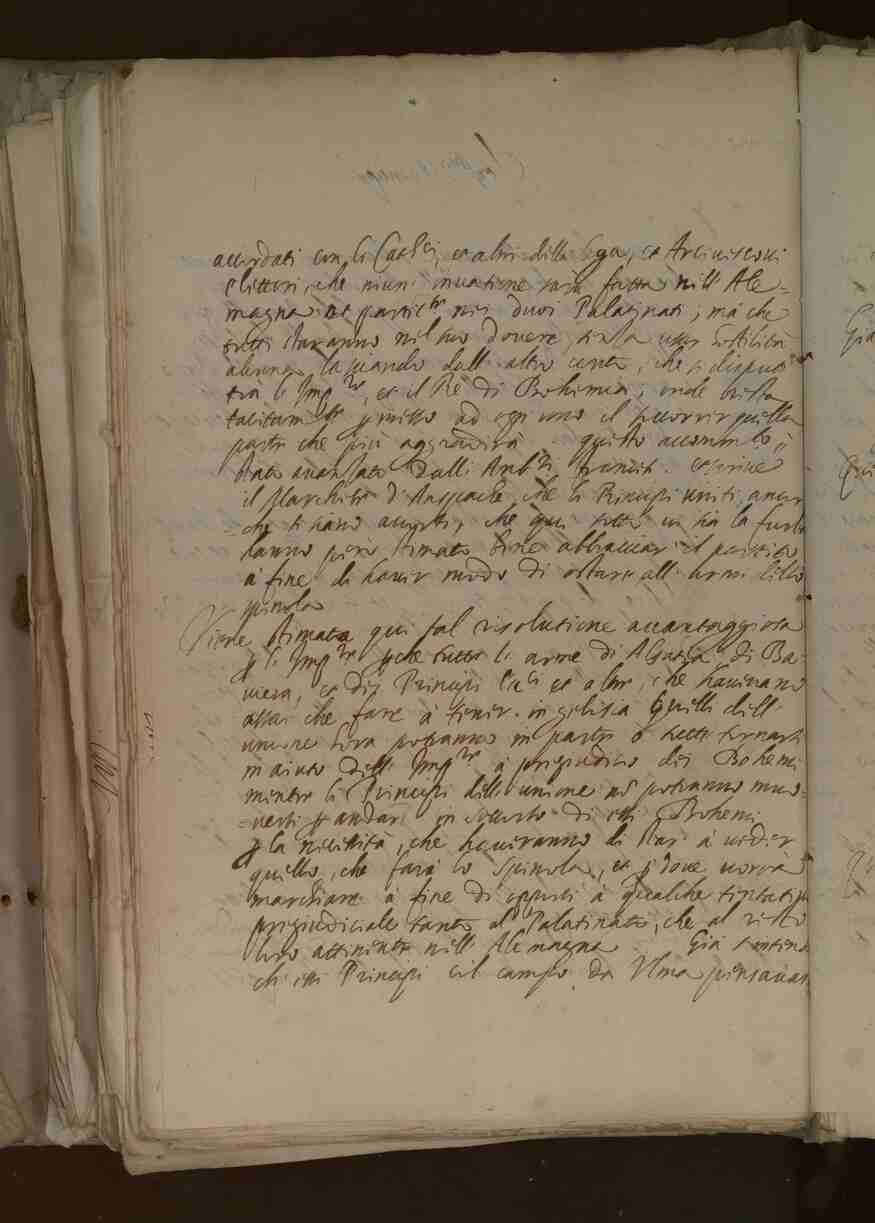 accordati con li Cat.ci, et altri della lega, et Arcivescovi
elettori, che niuna invatione sara fatta nell'Ale=
magna et partic.te nei duoi Palatinati, mà che
tutti staranno nel suo dovere senza usar hostilità
alcuna lasciando dall'altro canto, che si disputi
trà l'Imp.re, et il Rè di Bohemia, onde resta
tacitam.te permisso ad ogn'uno il soccorrer quella
parte che più aggradirà questo accomodo è
stato avanzato dalli Amb.ri francesi. et scrive
il Marchese d'Anspach, che li Principi uniti, ancor
=che si siano accorti, che qui sotto vi sia la fraude
hanno però stimato bene abbracciar il partito
à fine di haver modo di ostare all'armi dello
spinola
Viene stimata qui tal risolutione avantaggiosa
per l'Imp.re perche tutte le arme di Alsatia di Ba=
viera, et di Principi Ecc.ci et altri, che havevano
assai che fare à tener in gelosia quelli dell'
unione hora potranno in parte ò tutte tornarsi
in aiuto dell'Imp.re à pregiudicio dei Bohemi
mentre li Principi dell'unione nō potranno muo=
=versi per andare in soccorso di essi Bohemi
per la necessità, che haveranno di star à veder
quello, che farà lo Spinola, et per dove vorrà
marchiare à fine di opporsi à qualche tentativo
pregiudiciale tanto al Palatinato, che al resto
loro attinente nell'Alemagna. Già
ch essi Principi col campo da Ulma pensavano